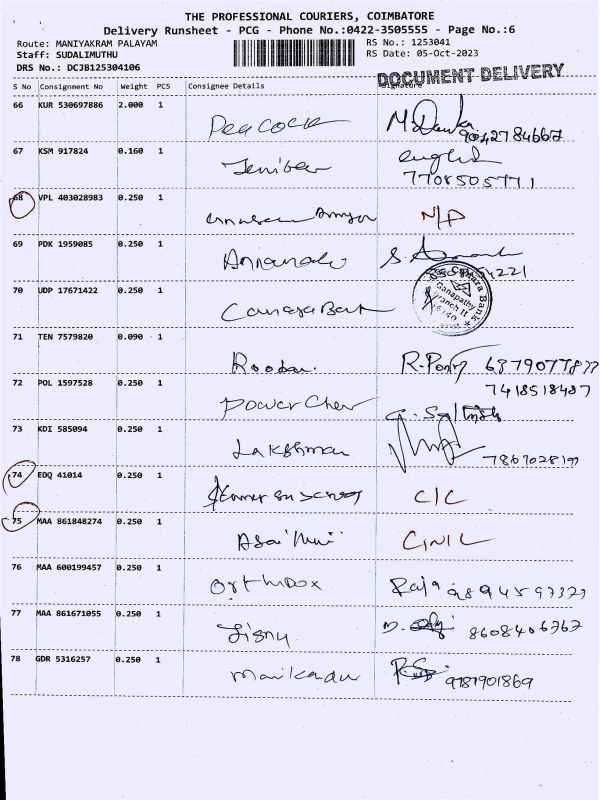 THE PROFESSIONAL COURIERS, COIMBATORE
Delivery Runsheet - PCG - Phone No.:0422-3505555 - Page No.:6
Route: MANIYAKRAM PALAYAM RS No.: 1253041
Staff: SUDALIMUTHU RS Date: 05-Oct-2023
DRS No.: DCJB125304106 DOCUMENT DELIVERY
S No Consignment No Weight PCS Consignee Details Signature
66 KUR 530697886 2.000 1 Peacock
9042784667
67 KSM 917824 0.160 1 Jenifer
7708505771
68 VPL 403028983 0.250 1 N/D
69 PDK 1959085 0.250 1 Annamalai
70 UDP 17671422 0.250 1 Canara Bank Canara Bank Ganapathy Branch
71 TEN 7579820 0.090 1 Rooban R.Pony 6379077877
7418518487
72 POL 1597528 0.250 1 Power Cher
73 KDI 585094 0.250 1 Lakshman
74 EDQ 41014 0.250 1 C/C
75 MAA 861848274 0.250 1 C/N/C
76 MAA 600199457 0.250 1 Orthodox Raja 9894597327
77 MAA 861671055 0.250 1 Jisny 8608406767
78 GDR 5316257 0.250 1 Manikadu 9787901869